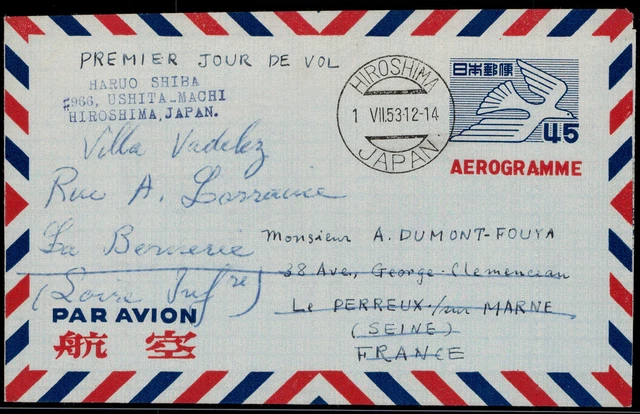 PREMIER JOUR DE VOL
HARUO SHIBA
#966, USHITA-MACHI
HIROSHIMA, JAPAN.
HIROSHIMA
1 VII.53.12-14
JAPAN.
日本郵便
45
AEROGRAMME
Villa Vadelez
Rue A. Lorraine
La Bernerie
(Loire Infre)
Monsieur A. DUMONT-FOUYA
38 Ave, George-Clemenceau
Le PERREUX-/sur MARNE
(SEINE)
FRANCE
PAR AVION
航空